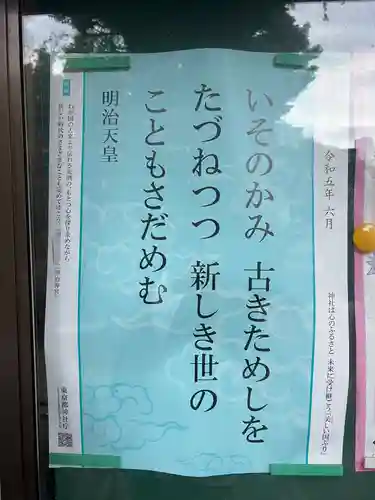 令和五年 六月
神社は心のふるさと 未来に受け継ごう「美しい国ぶり」
いそのかみ 古きためしを
たづねつつ 新しき世の
こともさだめむ
明治天皇
東京都神社庁